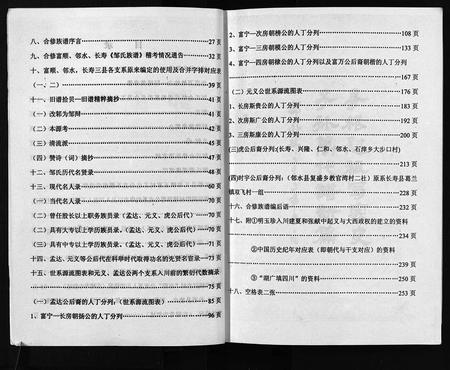 八、合修族谱序言 27 页
九、合修富顺、邻水、长寿《邹氏族谱》稽考情况通告 32 页
十、富顺、邻水、长寿三县各支系原来编定的使用及合并字排对应表
(一、二) 39 页
十一、旧谱捡贝—旧谱精粹摘抄 41 页
(一) 改邹为邹附 41 页
(二) 本源考 42 页
(三) 清流派 45 页
(四) 赞诗(词)摘抄 47 页
十二、邹氏历代名贤录 48 页
十三、现代名人录 60 页
(一) 当代名人录 70 页
(二) 曾任股长以上职务族员录(孟达、元义、虎公后代) 70 页
(二) 具有大专以上学历族员录。(孟达、元义、虎公后代) 71 页
(三) 具有中专以上学历族员录。(孟达、元义、虎公后代) 71 页
十四、孟达、元义等公后代在科举时代取得功名的先贤名官录 72 页
十五、世系源流图表和元义、孟达公两个支系入川前的繁衍代数摘录
75 页
(一) 孟达公后裔的人丁分列:(世系源流图表) 85 页
1、富宁一长房朝扬公的人丁分列 96 页
2、富宁一次房朝榜公的人丁分列 108 页
3、富宁一三房朝模公的人丁分列 133 页
4、富宁一四房朝禄公的人丁分列以及富万公后裔朝楷的人丁分列
167 页
(二) 元义公世系源流图表 176 页
1、长房斯贵公的人丁分列 183 页
2、次房斯广公的人丁分列 192 页
3、三房斯康公的人丁分列 200 页
(三)虎公后裔分列:(长寿、兴隆、仁和、邻水、石滓乡大步口村)
213 页
(四)时宇公后裔分列:(邻水县复盛乡教官湾村二社)原系长寿县葛兰
镇双飞村一组 228 页
十六、合修族谱编后语 232 页
十七、附①明玉珍入川建夏和张献中起义与大西政权的建立的资料
234 页
②中国历史纪年对应表(即朝代与干支对应)的资料
239 页
③“湖广填四川”的资料 250 页
十八、空格表二张 253 页